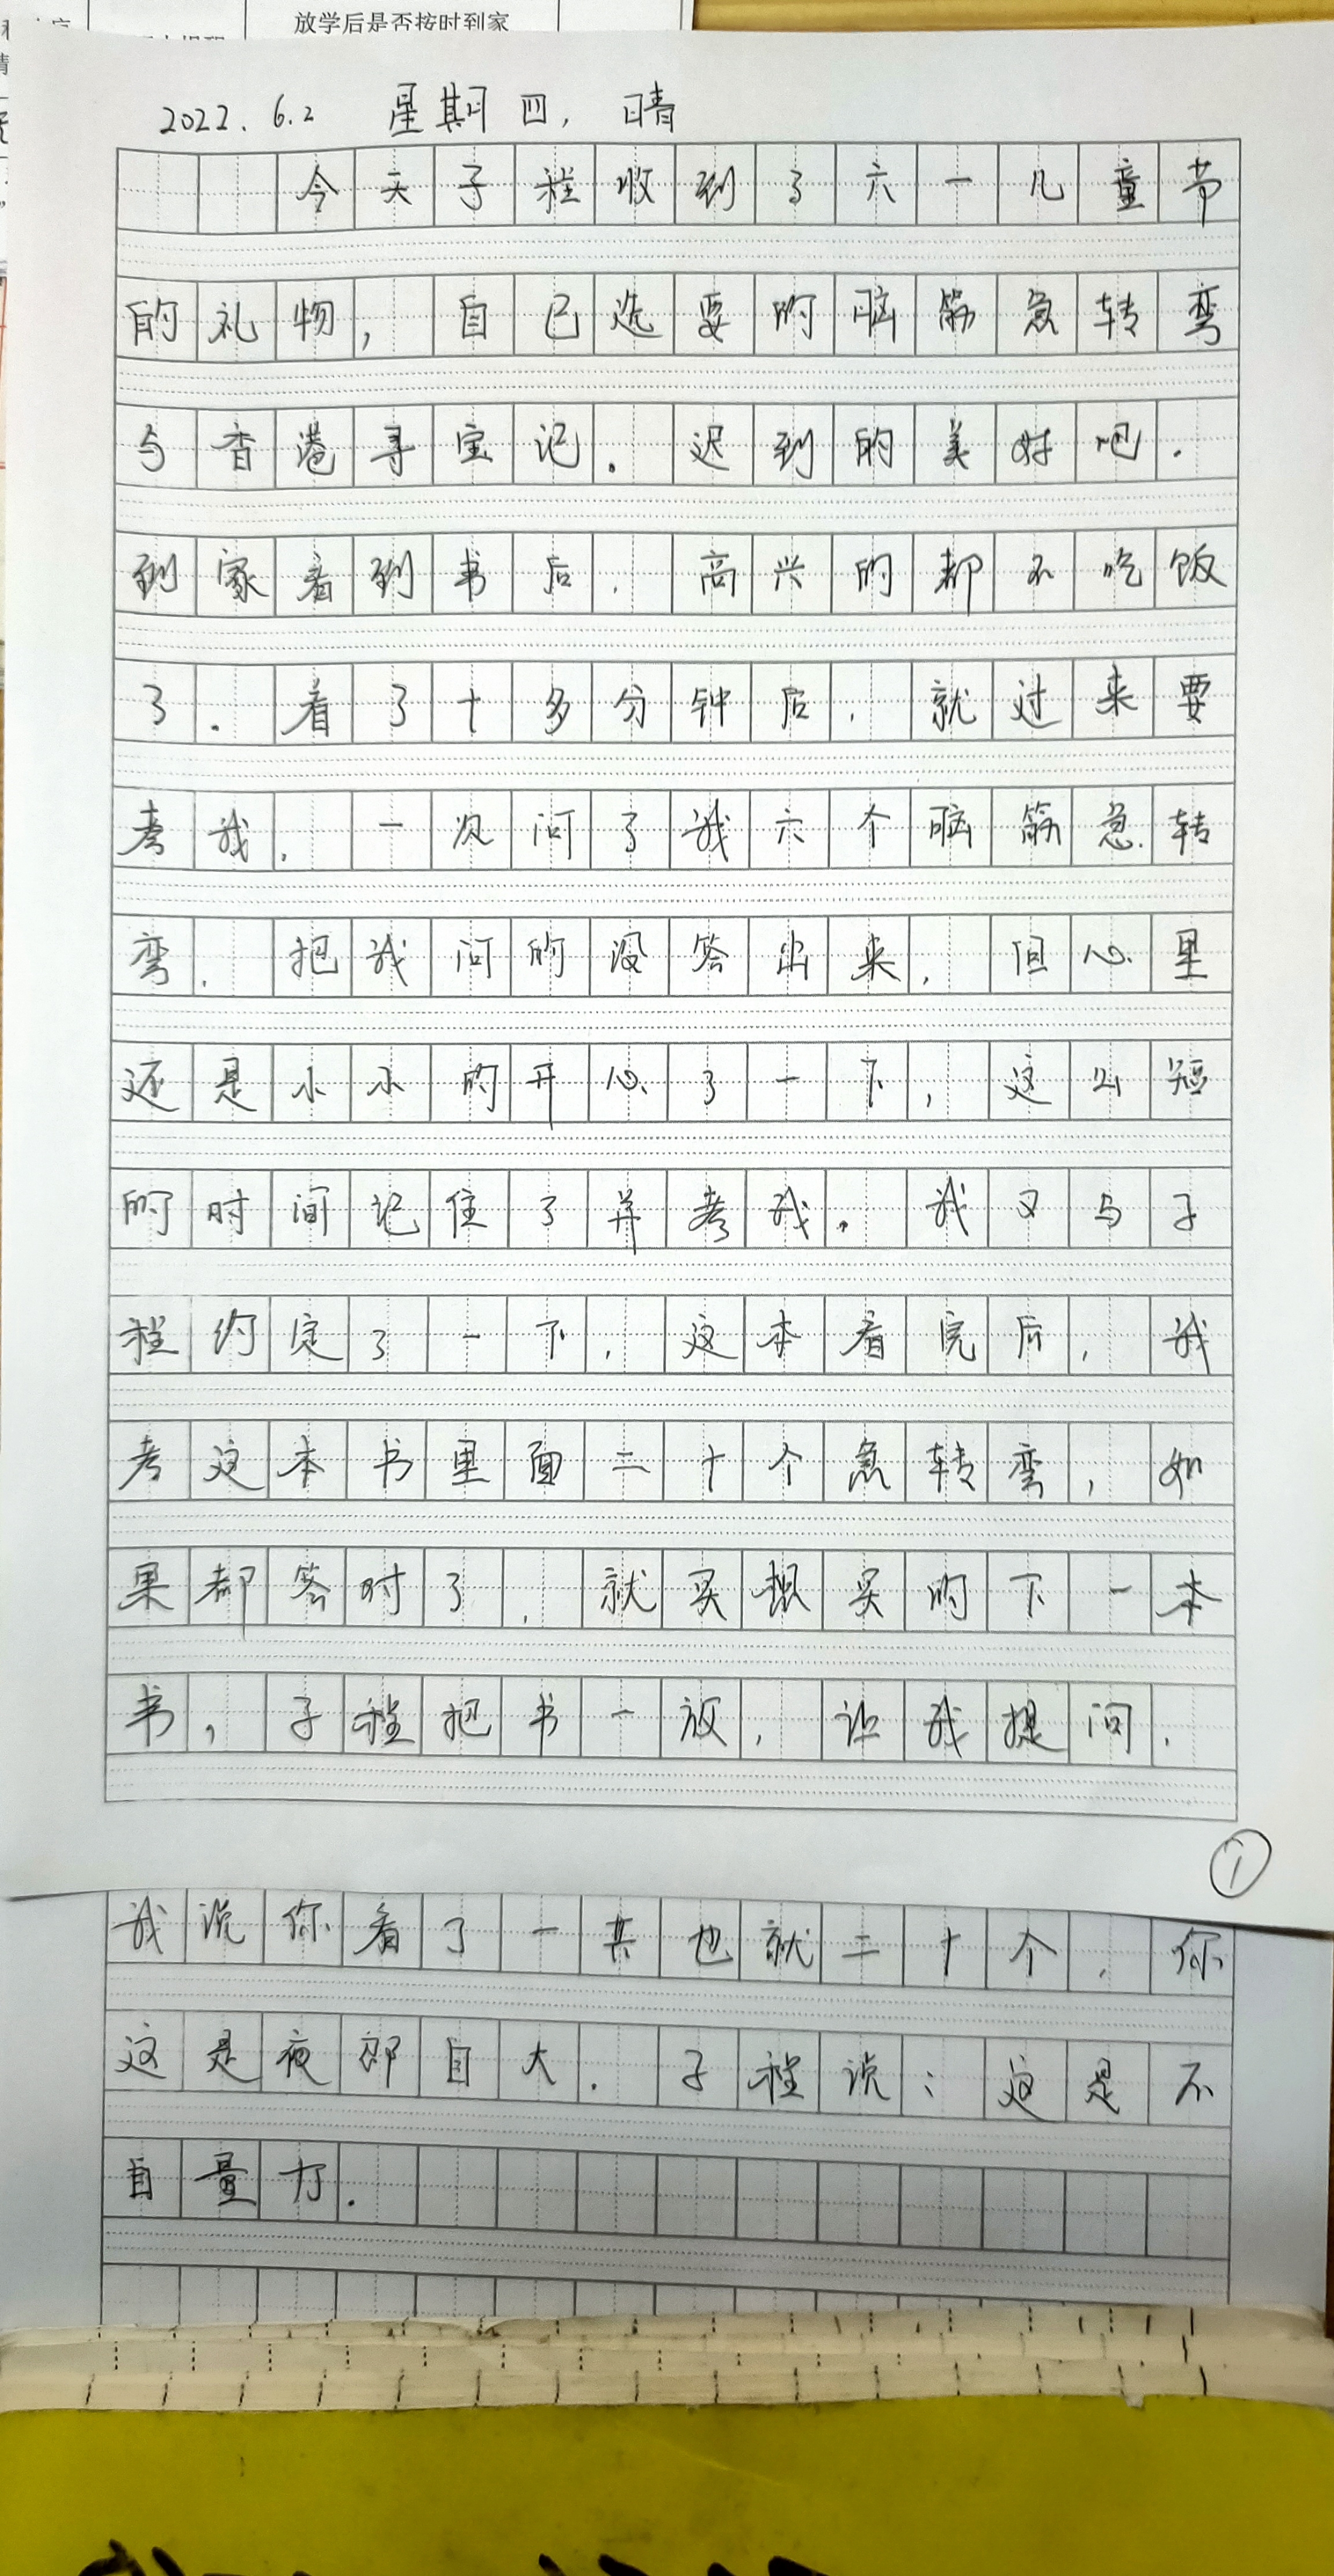 放学后是否按时到家
2022.6.2 星期四, 晴
今天子程收到了六一儿童节
的礼物, 自已选要的脑筋急转弯
与香港寻宝记. 迟到的美好吧.
到家看到书后, 高兴的都不吃饭
了. 看了十多分钟后, 就过来要
考我, 一次问了我六个脑筋急转
弯, 把我问的没答出来, 但心里
还是小小的开心了一下, 这么短
的时间记住了并考我. 我又与子
程约定了一下, 这本看完后, 我
考这本书里面二十个急转弯, 如
果都答对了, 就买想买的下一本
书, 子程把书一放, 让我提问.
①
我说你看了一共也就二十个, 你
这是夜郎自大. 子程说: 这是不
自量力.